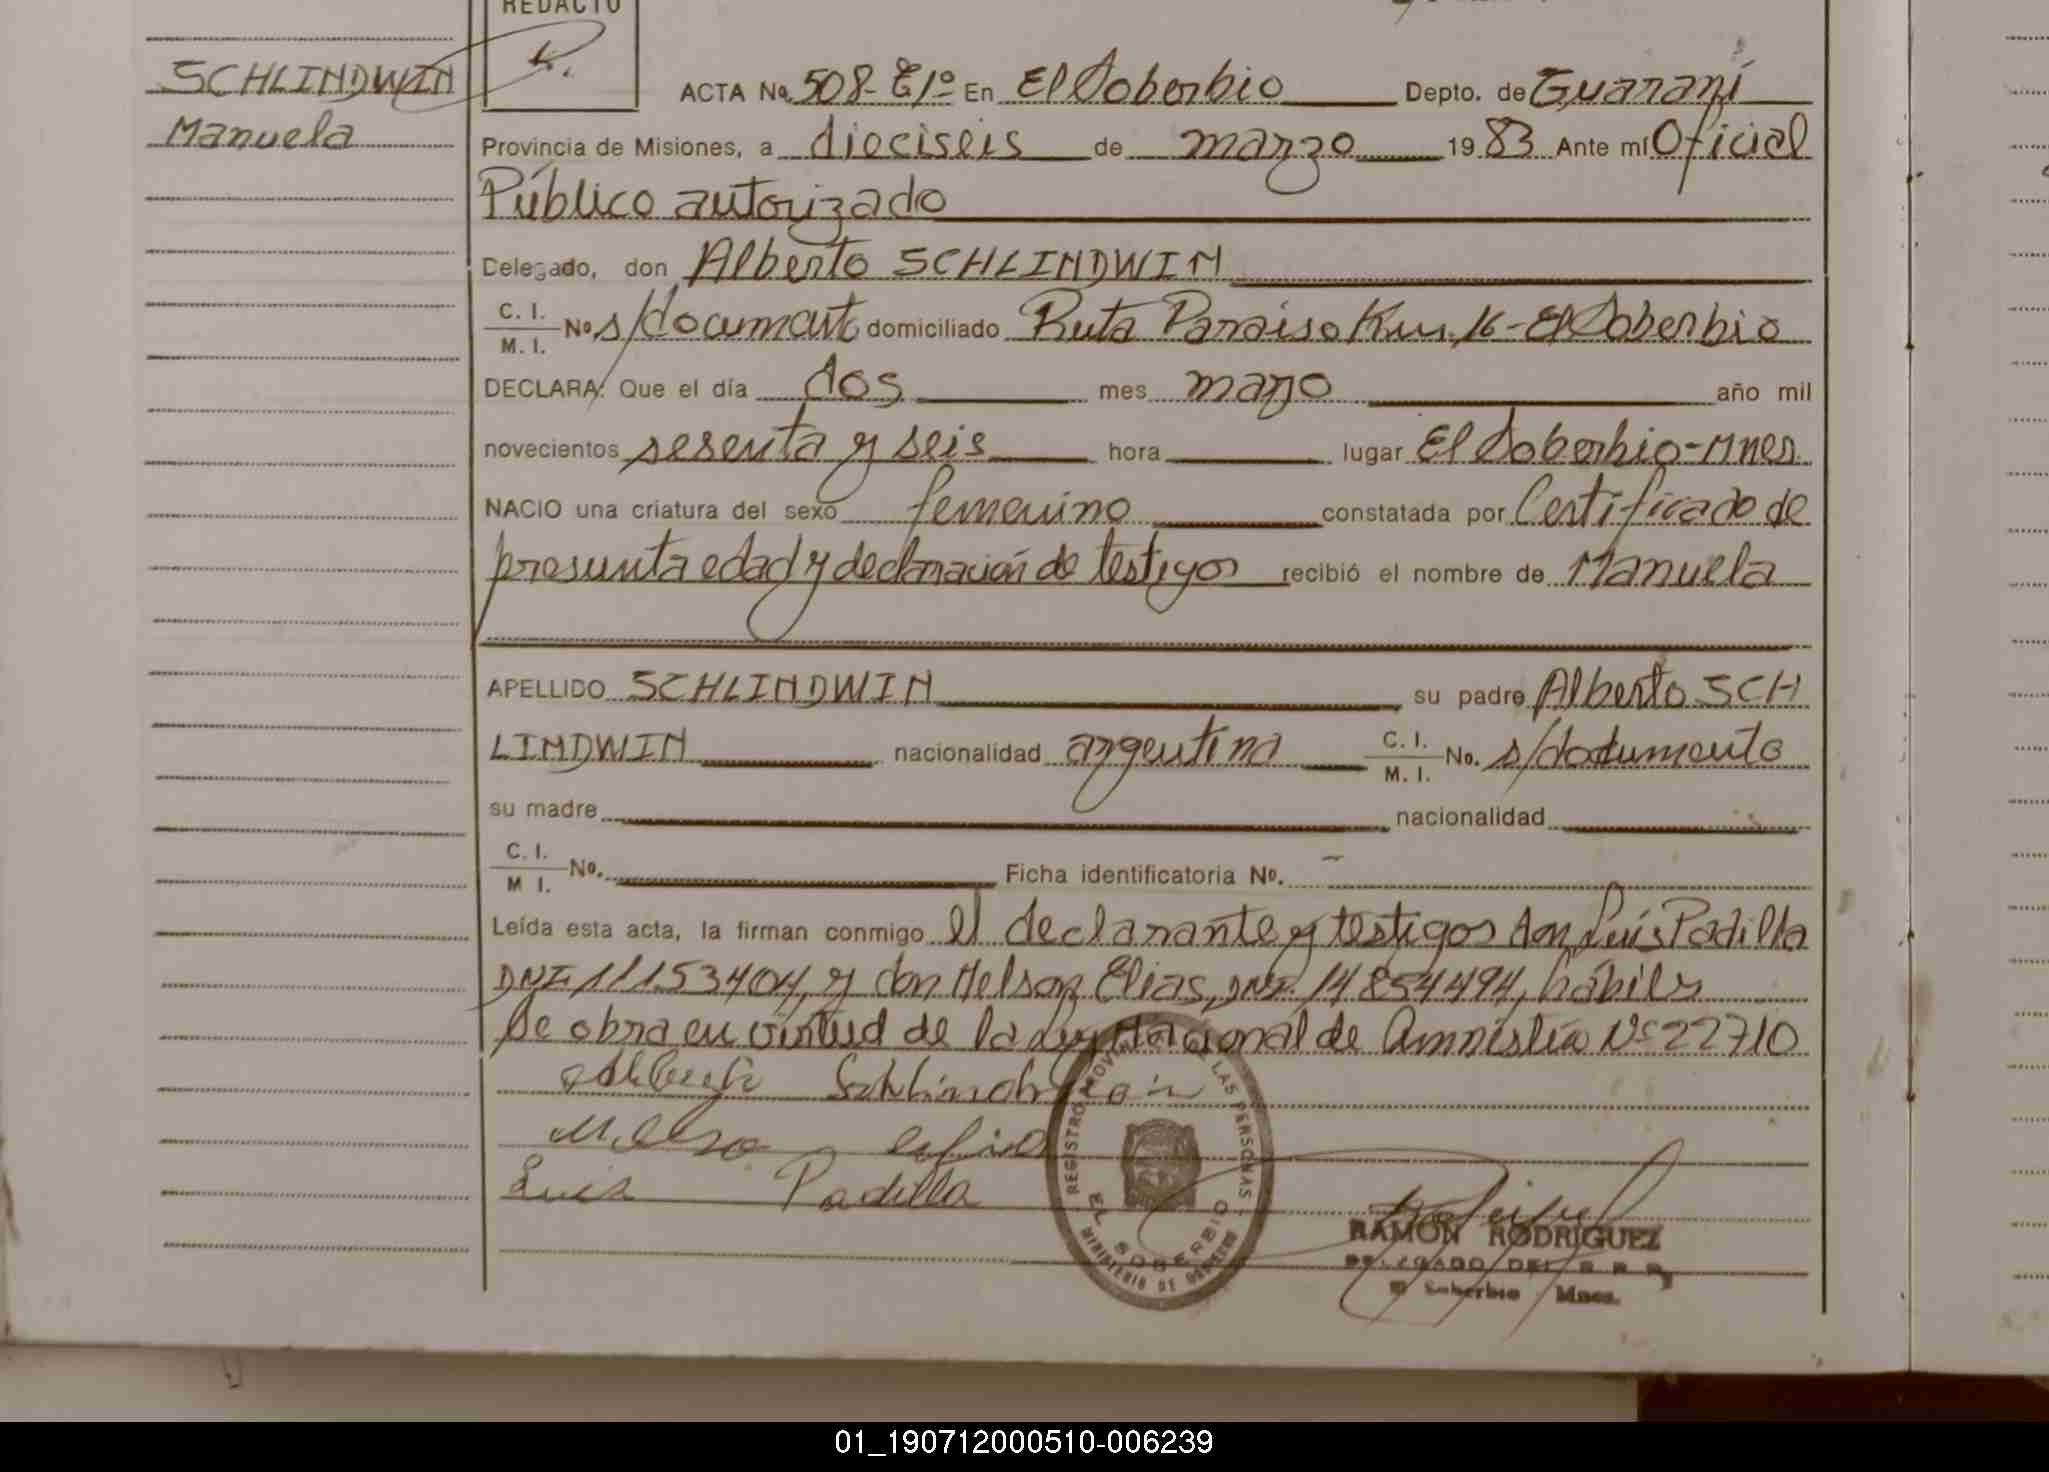 REDACTO
SCHLINDWIN
Manuela
ACTA No. 508- T1º En El Soberbio Depto. de Guaraní
Provincia de Misiones, a dieciseis de marzo 1983 Ante mí Oficial
Público autorizado
Delegado, don Alberto SCHLINDWIN
C. I. / M. I. No s/document domiciliado Ruta Paraiso Km. 16 - El Soberbio
DECLARA: Que el día dos mes marzo año mil
novecientos sesenta y seis hora lugar El Soberbio-Mnes.
NACIO una criatura del sexo femenino constatada por Certificado de
presunta edad y declaración de testigos recibió el nombre de Manuela
APELLIDO SCHLINDWIN su padre Alberto SCH
LINDWIN nacionalidad argentina C. I. / M. I. No. s/documento
su madre nacionalidad
C. I. / M I. No. Ficha identificatoria No. -
Leída esta acta, la firman conmigo el declarante y testigos don Luís Padilla
DNI 11153404, y don Nelson Elias, DNI. 14854494, hábiles
Se obra en virtud de la Ley Nacional de Amnistía Nº 22710
Alberto Schlindwein
Nelso Elias
Luis Padilla
REGISTRO PROVINCIAL DE LAS PERSONAS
EL SOBERBIO
MINISTERIO DE GOBIERNO
RAMON RODRIGUEZ
DELEGADO DEL R. R. P.
El Soberbio - Mnes.
01_190712000510-006239